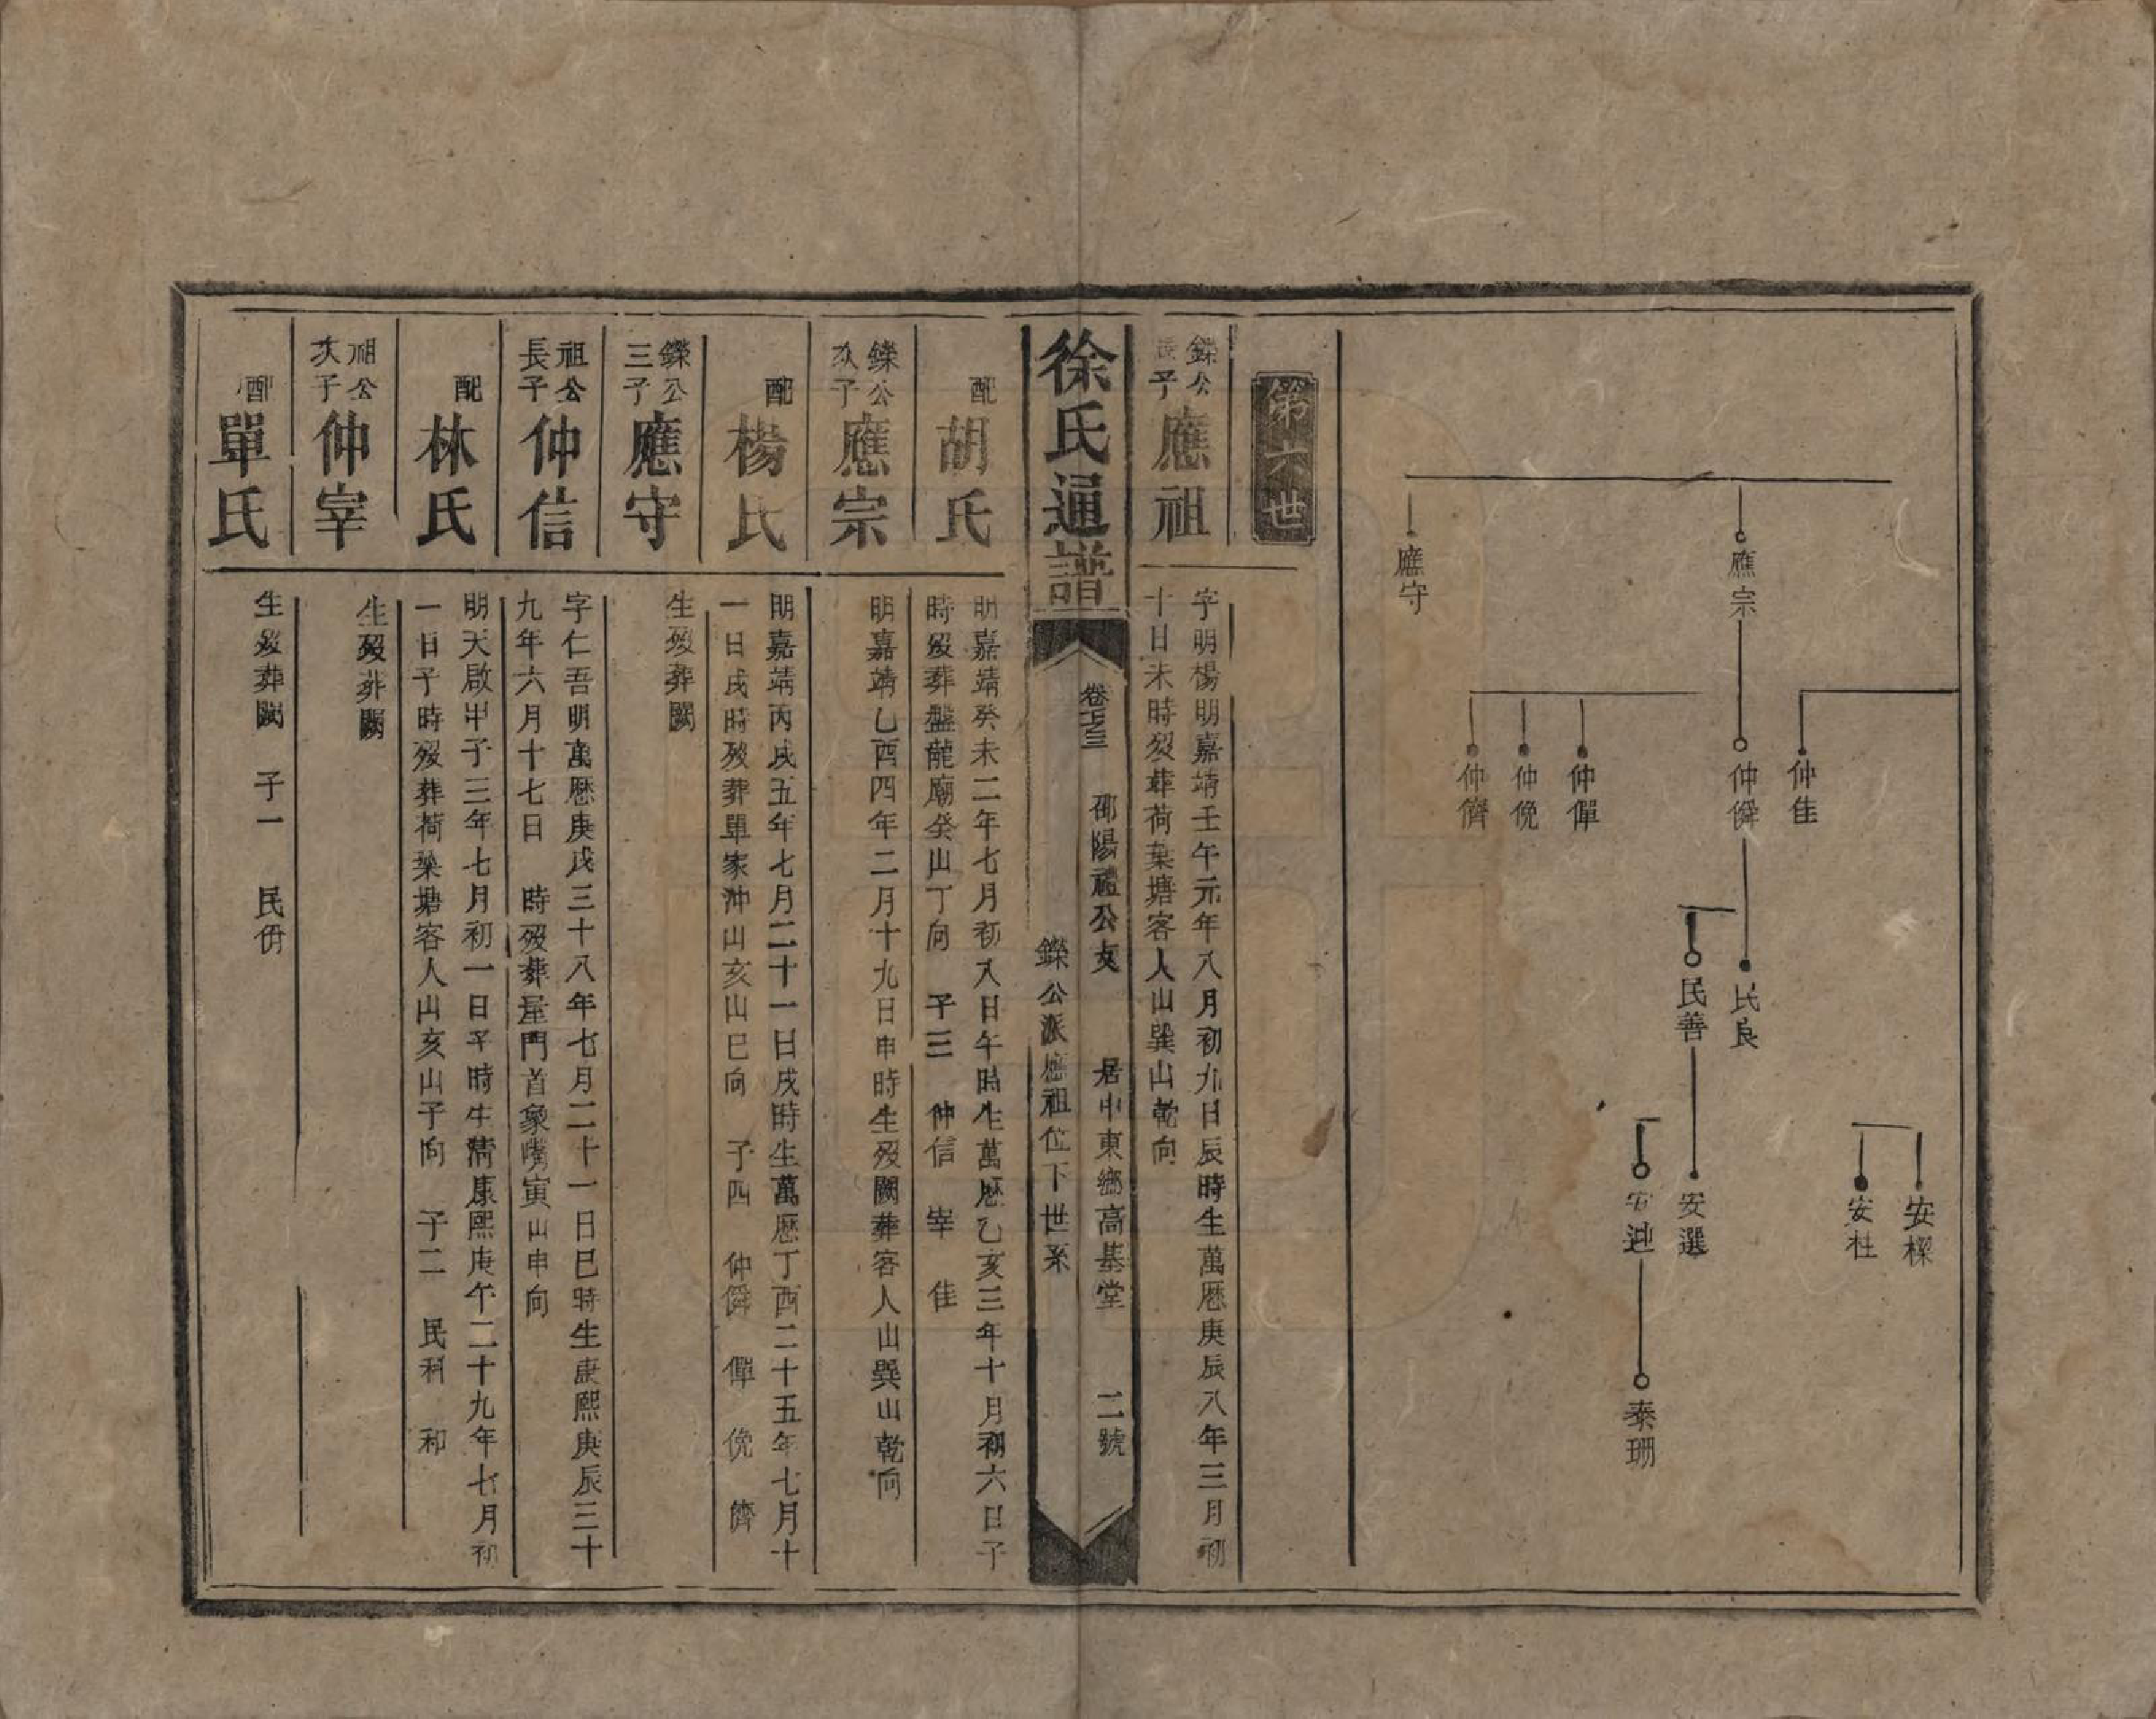 應宗
應守
仲佳
仲僯
仲僤
仲俛
仲儕
民良
民善
安樑
安杜
安選
安迎
泰珊
第六世
鑠公長子 應祖
字明楊明嘉靖壬午元年八月初九日辰時生萬厯庚辰八年三月初
十日未時歿葬荷葉塘客人山巽山乾向
徐氏通譜
卷之三 邵陽禮公支 居中東鄉高基堂 二號
鑠公派應祖位下世系
配 胡氏
明嘉靖癸未二年七月初八日午時生萬厯乙亥三年十月初六日子
時歿葬盤龍廟癸山丁向 子三 仲信 宰 佳
鑠公次子 應宗
明嘉靖乙酉四年二月十九日申時生歿闕葬客人山巽山乾向
配 楊氏
明嘉靖丙戌五年七月二十一日戌時生萬厯丁酉二十五年七月十
一日戌時歿葬單家沖山亥山巳向 子四 仲僯 僤 俛 儕
鑠公三子 應守
生歿葬闕
祖公長子 仲信
字仁吾明萬厯庚戌三十八年七月二十一日巳時生康熙庚辰三十
九年六月十七日 時歿葬屋門首象嘴寅山申向
配 林氏
明天啟甲子三年七月初一日子時生清康熙庚午二十九年七月初
一日子時歿葬荷葉塘客人山亥山子向 子二 民科 和
祖公次子 仲宰
生歿葬闕
配 單氏
生歿葬闕 子一 民侀